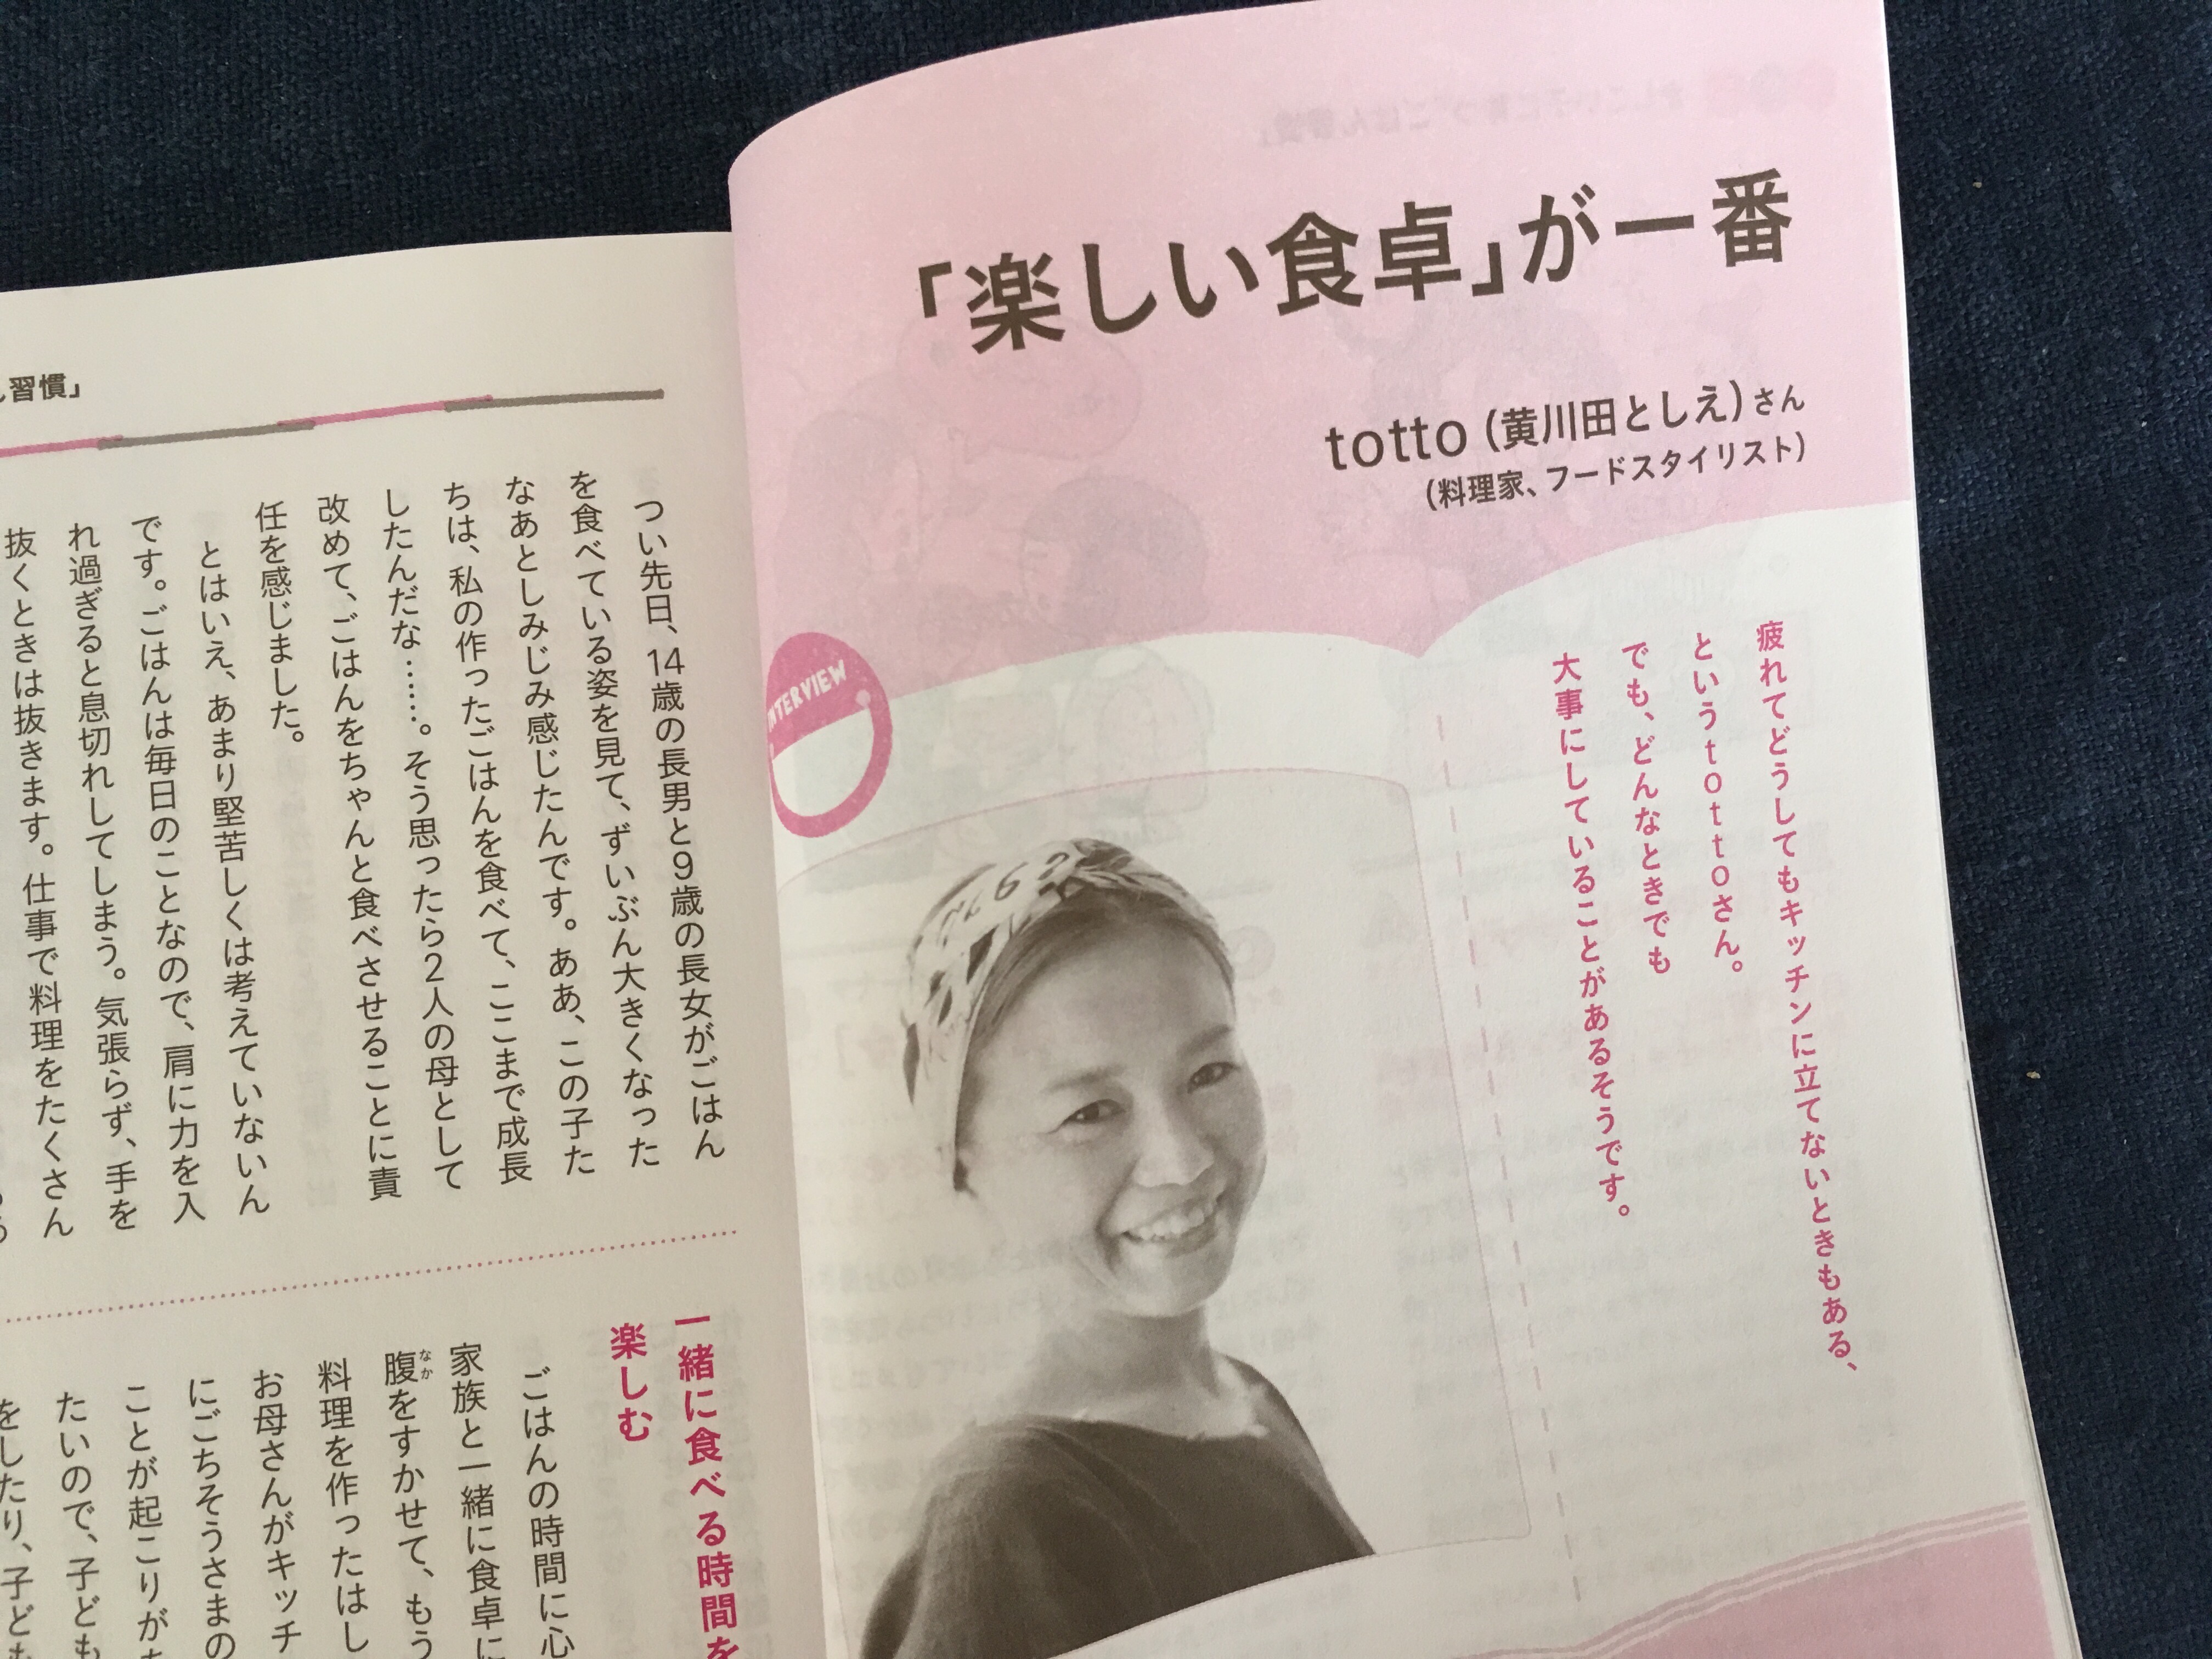 「楽しい食卓」が一番
totto(黄川田としえ)さん
(料理家、フードスタイリスト)
疲れてどうしてもキッチンに立てないときもある、
というtottoさん。
でも、どんなときでも
大事にしていることがあるそうです。
INTERVIEW
習慣」
つい先日、14歳の長男と9歳の長女がごはん
を食べている姿を見て、ずいぶん大きくなった
なあとしみじみ感じたんです。ああ、この子た
ちは、私の作ったごはんを食べて、ここまで成長
したんだな……。そう思ったら2人の母として
改めて、ごはんをちゃんと食べさせることに責
任を感じました。
とはいえ、あまり堅苦しくは考えていないん
です。ごはんは毎日のことなので、肩に力を入
れ過ぎると息切れしてしまう。気張らず、手を
抜くときは抜きます。仕事で料理をたくさん
一緒に食べる時間を
楽しむ
ごはんの時間に心
家族と一緒に食卓に
腹をすかせて、もう
なか
料理を作ったはし
お母さんがキッチ
にごちそうさまの
ことが起こりが
たいので、子ども
をしたり、子ども